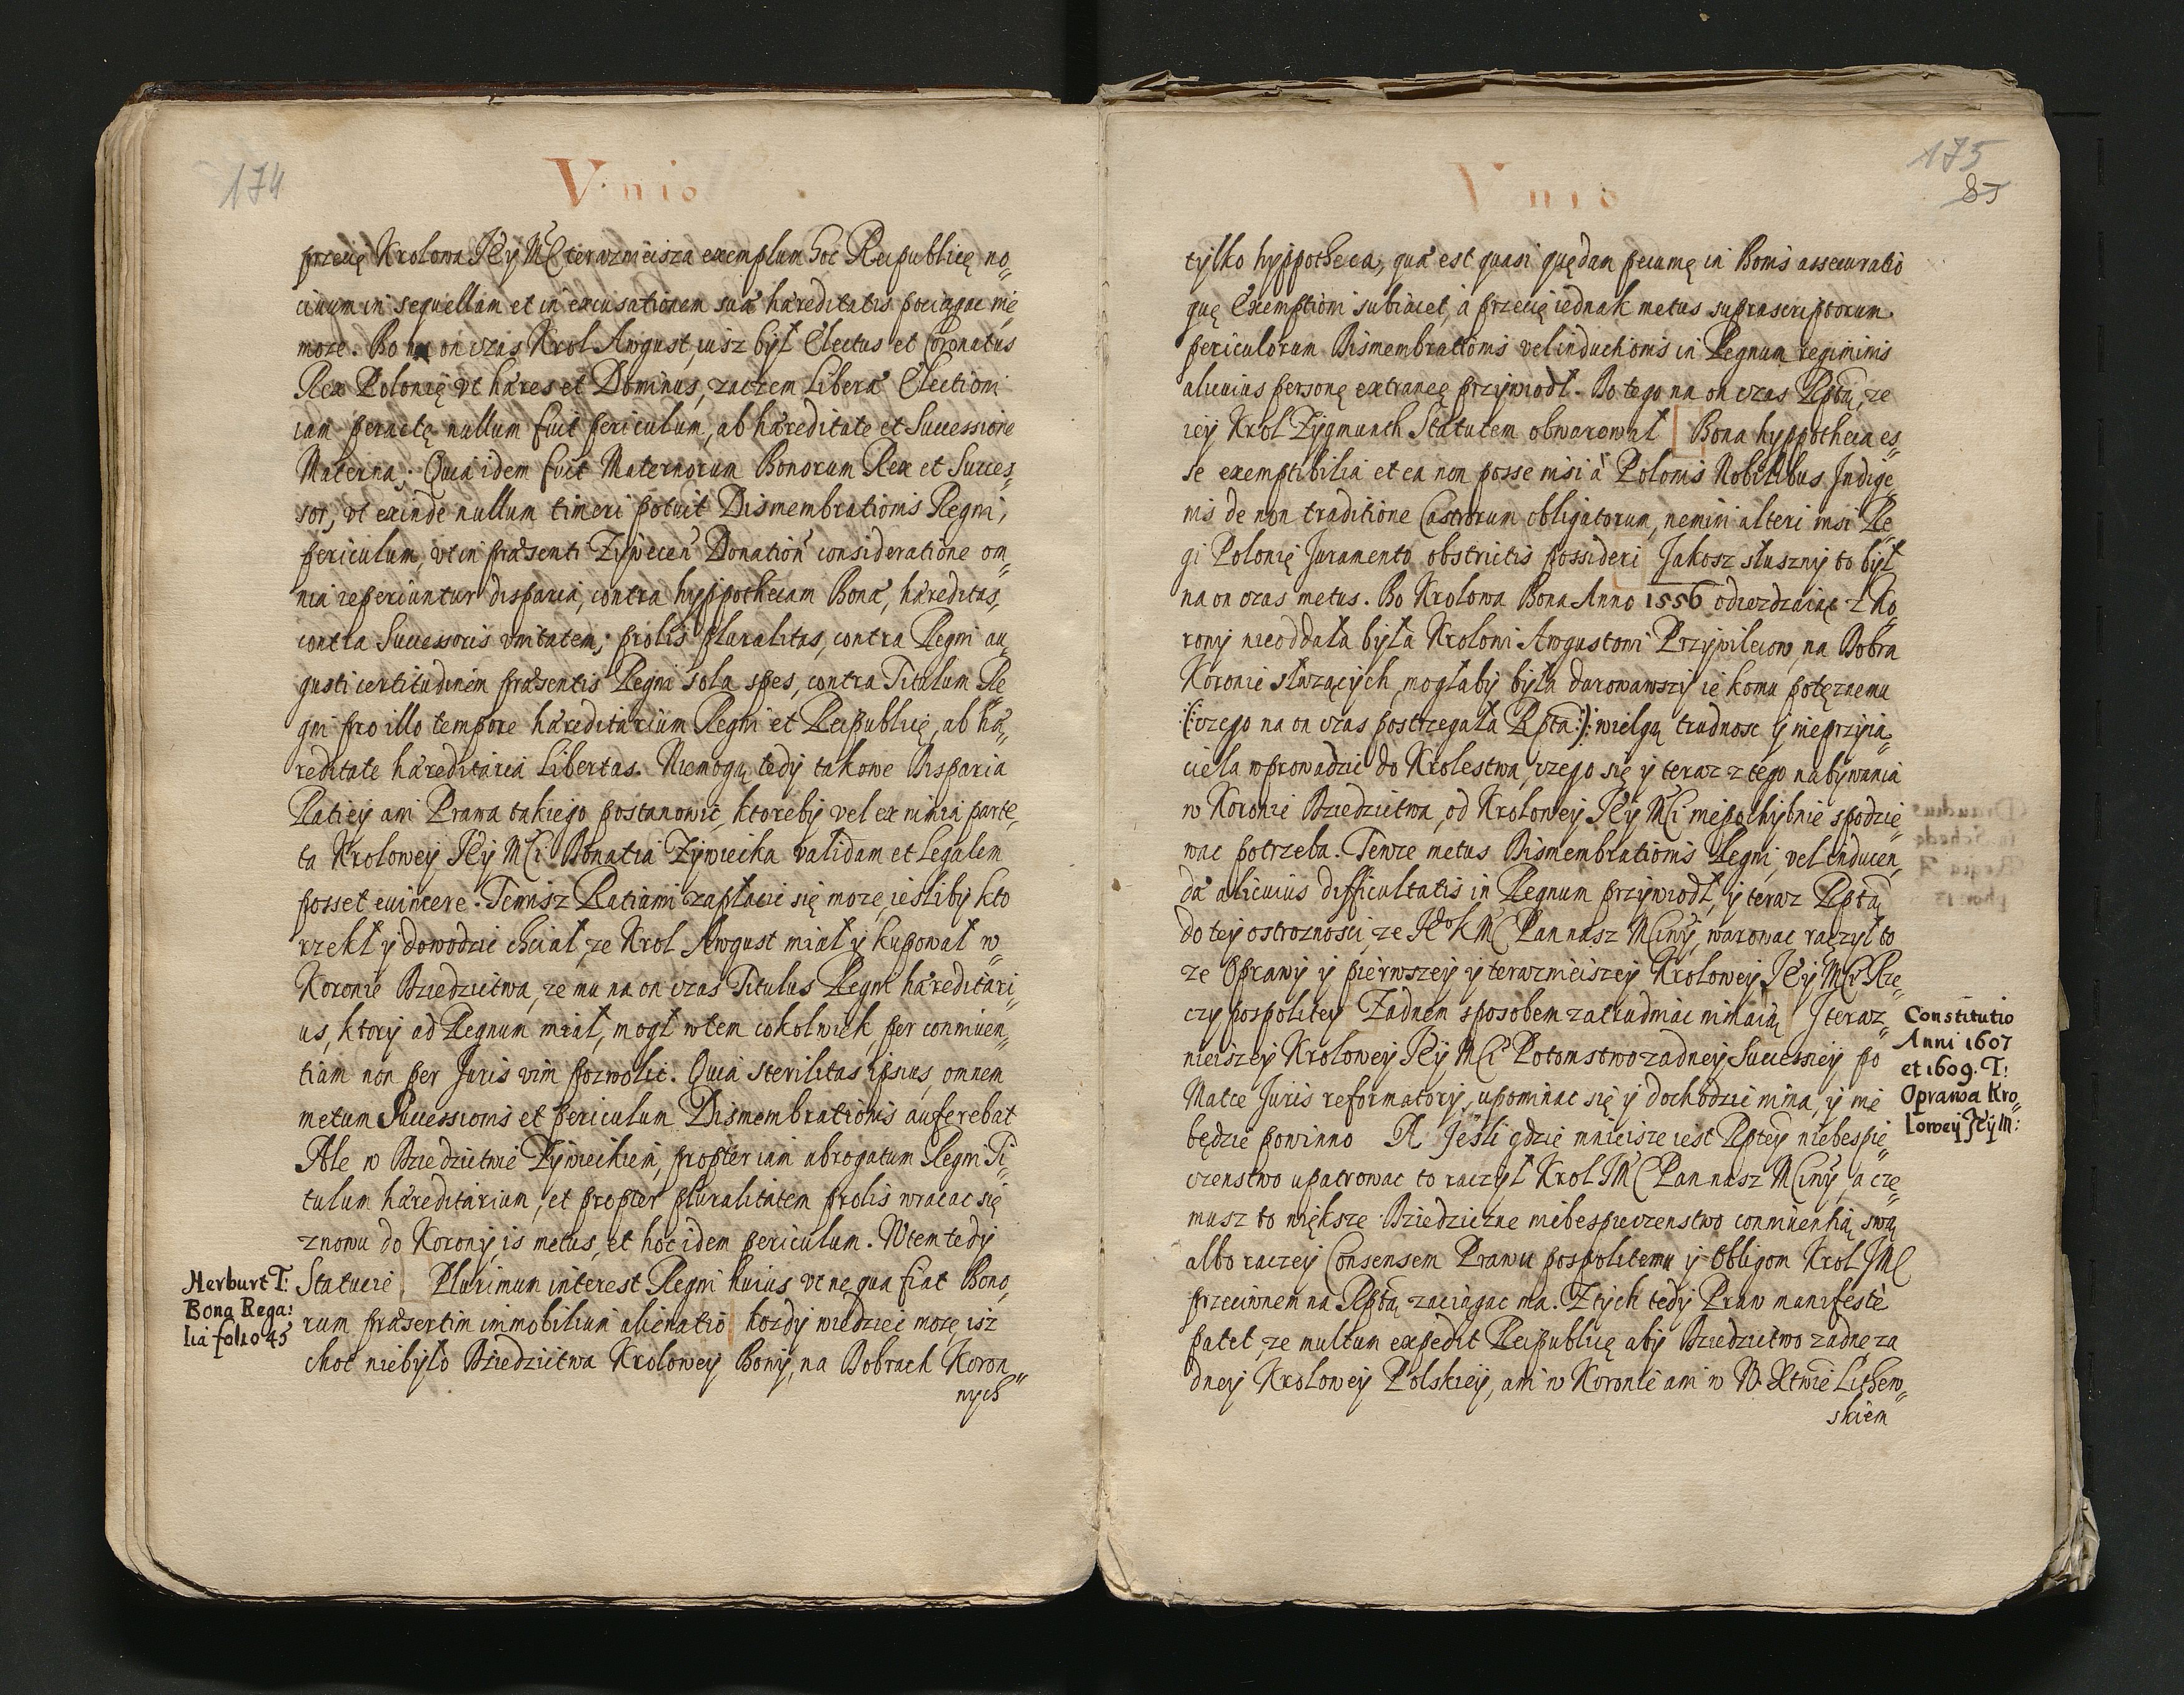 174
Vnio
przecię Krolowa JEy MC teraznieisza exemplum hoc Reipublicę no„
ciuum in sequellam et in excusationem suæ hæreditatis pociągac nie
może. Bo na on czas Krol Awgust, iusz był Electus et Coronatus
Rex Polonię vt hæres et Dominus, zaczem Liberæ Electioni
iam peractę nullum fuit periculum, ab hæreditate et Successione
Materna. Quia idem fuit Maternorum Bonorum Rex et Succes„
sor, vt exinde nullum timeri potuit Dismembrationis Regni,
periculum, vt in præsenti Zywecen Donation consideratione om„
nia reperiuntur disparia, contra hyppothecam Bonæ, hæreditas,
contra Successoris vnitatem, prolis pluralitas, contra Regni au„
gusti certitudinem præsentis Regni sola spes, contra Titulum Re„
gni pro illo tempore hæreditarium Regni et Reipublicę, ab hæ„
reditate hæreditaria Libertas. Niemogą tedy takowe Disparia
Ratiey ani Prawa takiego postanowić, ktoreby vel ex minia parte,
ta Krolowey JEy MCi Donatia Zywiecka validam et Legalem
posset euincere. Temisz Ratiami zapłacic się może, iesliby kto
rzekł y dowodzic chciał, ze Krol Awgust miał y kupował w
Koronie Dziedzictwa, ze mu na on czas Titulus Regni hæreditari„
us, ktory ad Regnum miał, mogł w tem cokolwiek, per conniuen„
tiam non per Juris vim pozwolic. Quia sterilitas ipsius, omnem
metum Successionis et periculum Dismembrationis auferebat
Ale w Dziedzictwie Zywieckiem, propter iam abrogatum Regni Ti„
tulum hæreditarium, et propter pluralitatem prolis wracac się
znowu do Korony, is metus, et hoc idem periculum. Wtem tedy
Statucie Plurimum interest Regni huius vt ne qua fiat Bono„
rum præsertim immobilium alienatio kozdy wiedziec może isz
choc niebyło Dziedzictwa Krolowey Bony, na Dobrach Koron„
nych
Herburt T:
Bona Rega:
lia folio 45
175
85
Vnio
tylko hyppotheca, quæ est quasi quędam pecunię in Bonis assecuratio
quę Exemptioni subiacet, a przecię iednak metus suprascriptorum
periculorum Dismembrationis vel inductionis in Regnum regiminis
alicuius personę extraneę przywiodł. Do tego na on czas Rptą, ze
iey Krol Zygmunth Statutem obwarował Bona hyppotheca es„
se exemptibilia et ea non posse nisi à Polonis Nobilibus Indige„
nis de non traditione Castrorum obligatorum, nemini alteri nisi Re„
gi Polonię Juramento obstrictis possideri Jakosz słuszny to był
na on czas metus. Bo Krolowa Bona Anno 1556 odiezdzaiąc z Ko„
rony nieoddała była Krolowi Awgustowi Przywileiow, na Dobra
Koronie słuzących, mogłaby była darowawszy ie komu potęznemu
(:czego na on czas postrzegała Rpta:) wielgą trudnosc y nieprzyia„
ciela wprowadzic do Krolestwa, czego się y teraz z tego nabywania
w Koronie Dziedzictwa, od Krolowey JEy MCi niepochybnie spodzie„
wac potrzeba. Tenze metus Dismembrationis Regni, vel inducen„
dæ alicuius difficultatis in Regnum przywiodł, y teraz Rptą
do tey ostroznosci, ze JEo K MC Pan nasz MCiwy, warowac raczył to
ze Oprawy y pierwszey y terazmieiszey Krolowey JEy MCi Rze„
czypospolitey Zadnem sposobem zatrudniac nimaią J teraz„
nieiszey Krolowey JEy MCi Potomstwo zadney Successiey po
Matce Juris reformatory, upominac się y dochodzic nima, y nie
będzie powinno A Jeśli gdzie mnieisze iest Rptey niebespie„
czenstwo upatrowac to raczył Krol JMC Pan nasz MCiwy, a cze„
musz to większe Dziedziczne niebespieczenstwo conniuentią swą
albo raczey Consensem Prawu pospolitemu y Obligom Krol JMC
przeciwnem na Rptą zaciągac ma. Z tych tedy Praw manifestè
patet, ze multum expedit Reipublicę aby Dziedzictwo zadne, za
dney Krolowey Polskiey, ani w Koronie ani w W. Xtwie Lithew„
skiem
Constitutio
Anni 1607
et 1609. T:
Oprawa Kro„
lowey JEy M: